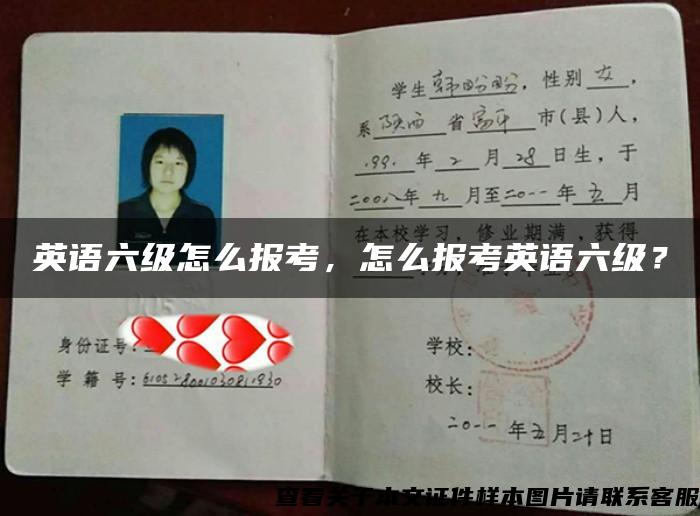 学生韩盼盼，性别女，
系陕西省富平市(县)人，
1991年2月28日生，于
二00八年九月至二0一一年五月
在本校学习，修业期满，获得
英语六级怎么报考，怎么报考英语六级？
身份证号：
学籍号：
学校：
校长：
二0一一年五月二十日
查看关于本文证件样本图片请联系客服